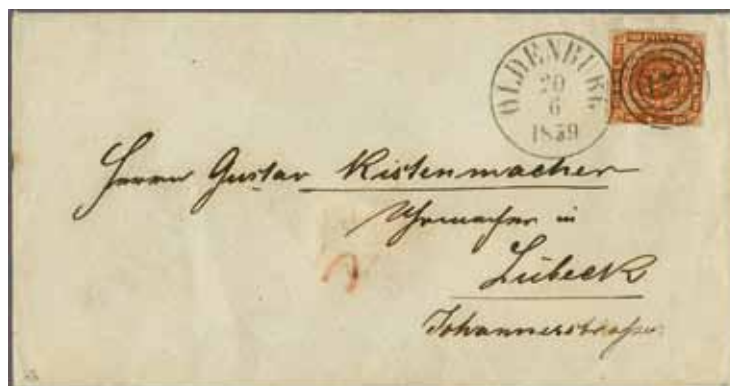 OLDENBURG
20
6
1859
Herrn Gustav Kistenmacher
Uhrmacher in
Lübeck
Johannerstraße